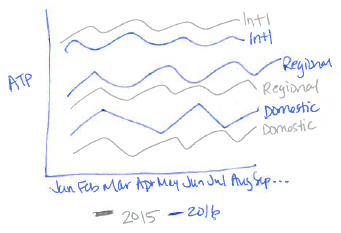 Int'l
Int'l
Regional
ATP
Regional
Domestic
Domestic
Jan Feb Mar Apr May Jun Jul Aug Sep ...
2015 2016